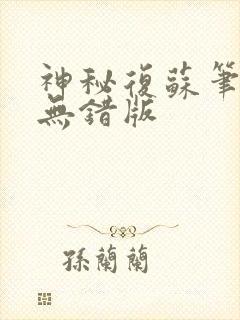 神秘復蘇筆
無錯版
孫蘭蘭